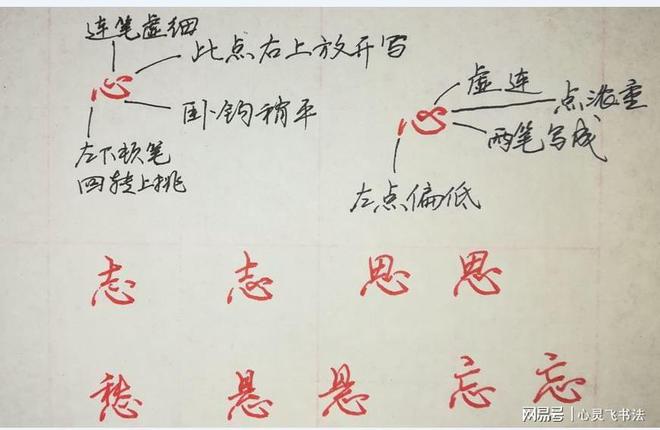 连笔虚细
心
此点右上放开写
卧钩稍平
左下顿笔
回转上挑
心
虚连
点浓重
两笔写成
左点偏低
志 志 思 思
愁 悬 悬 忘 忘
网易号 | 心灵飞书法